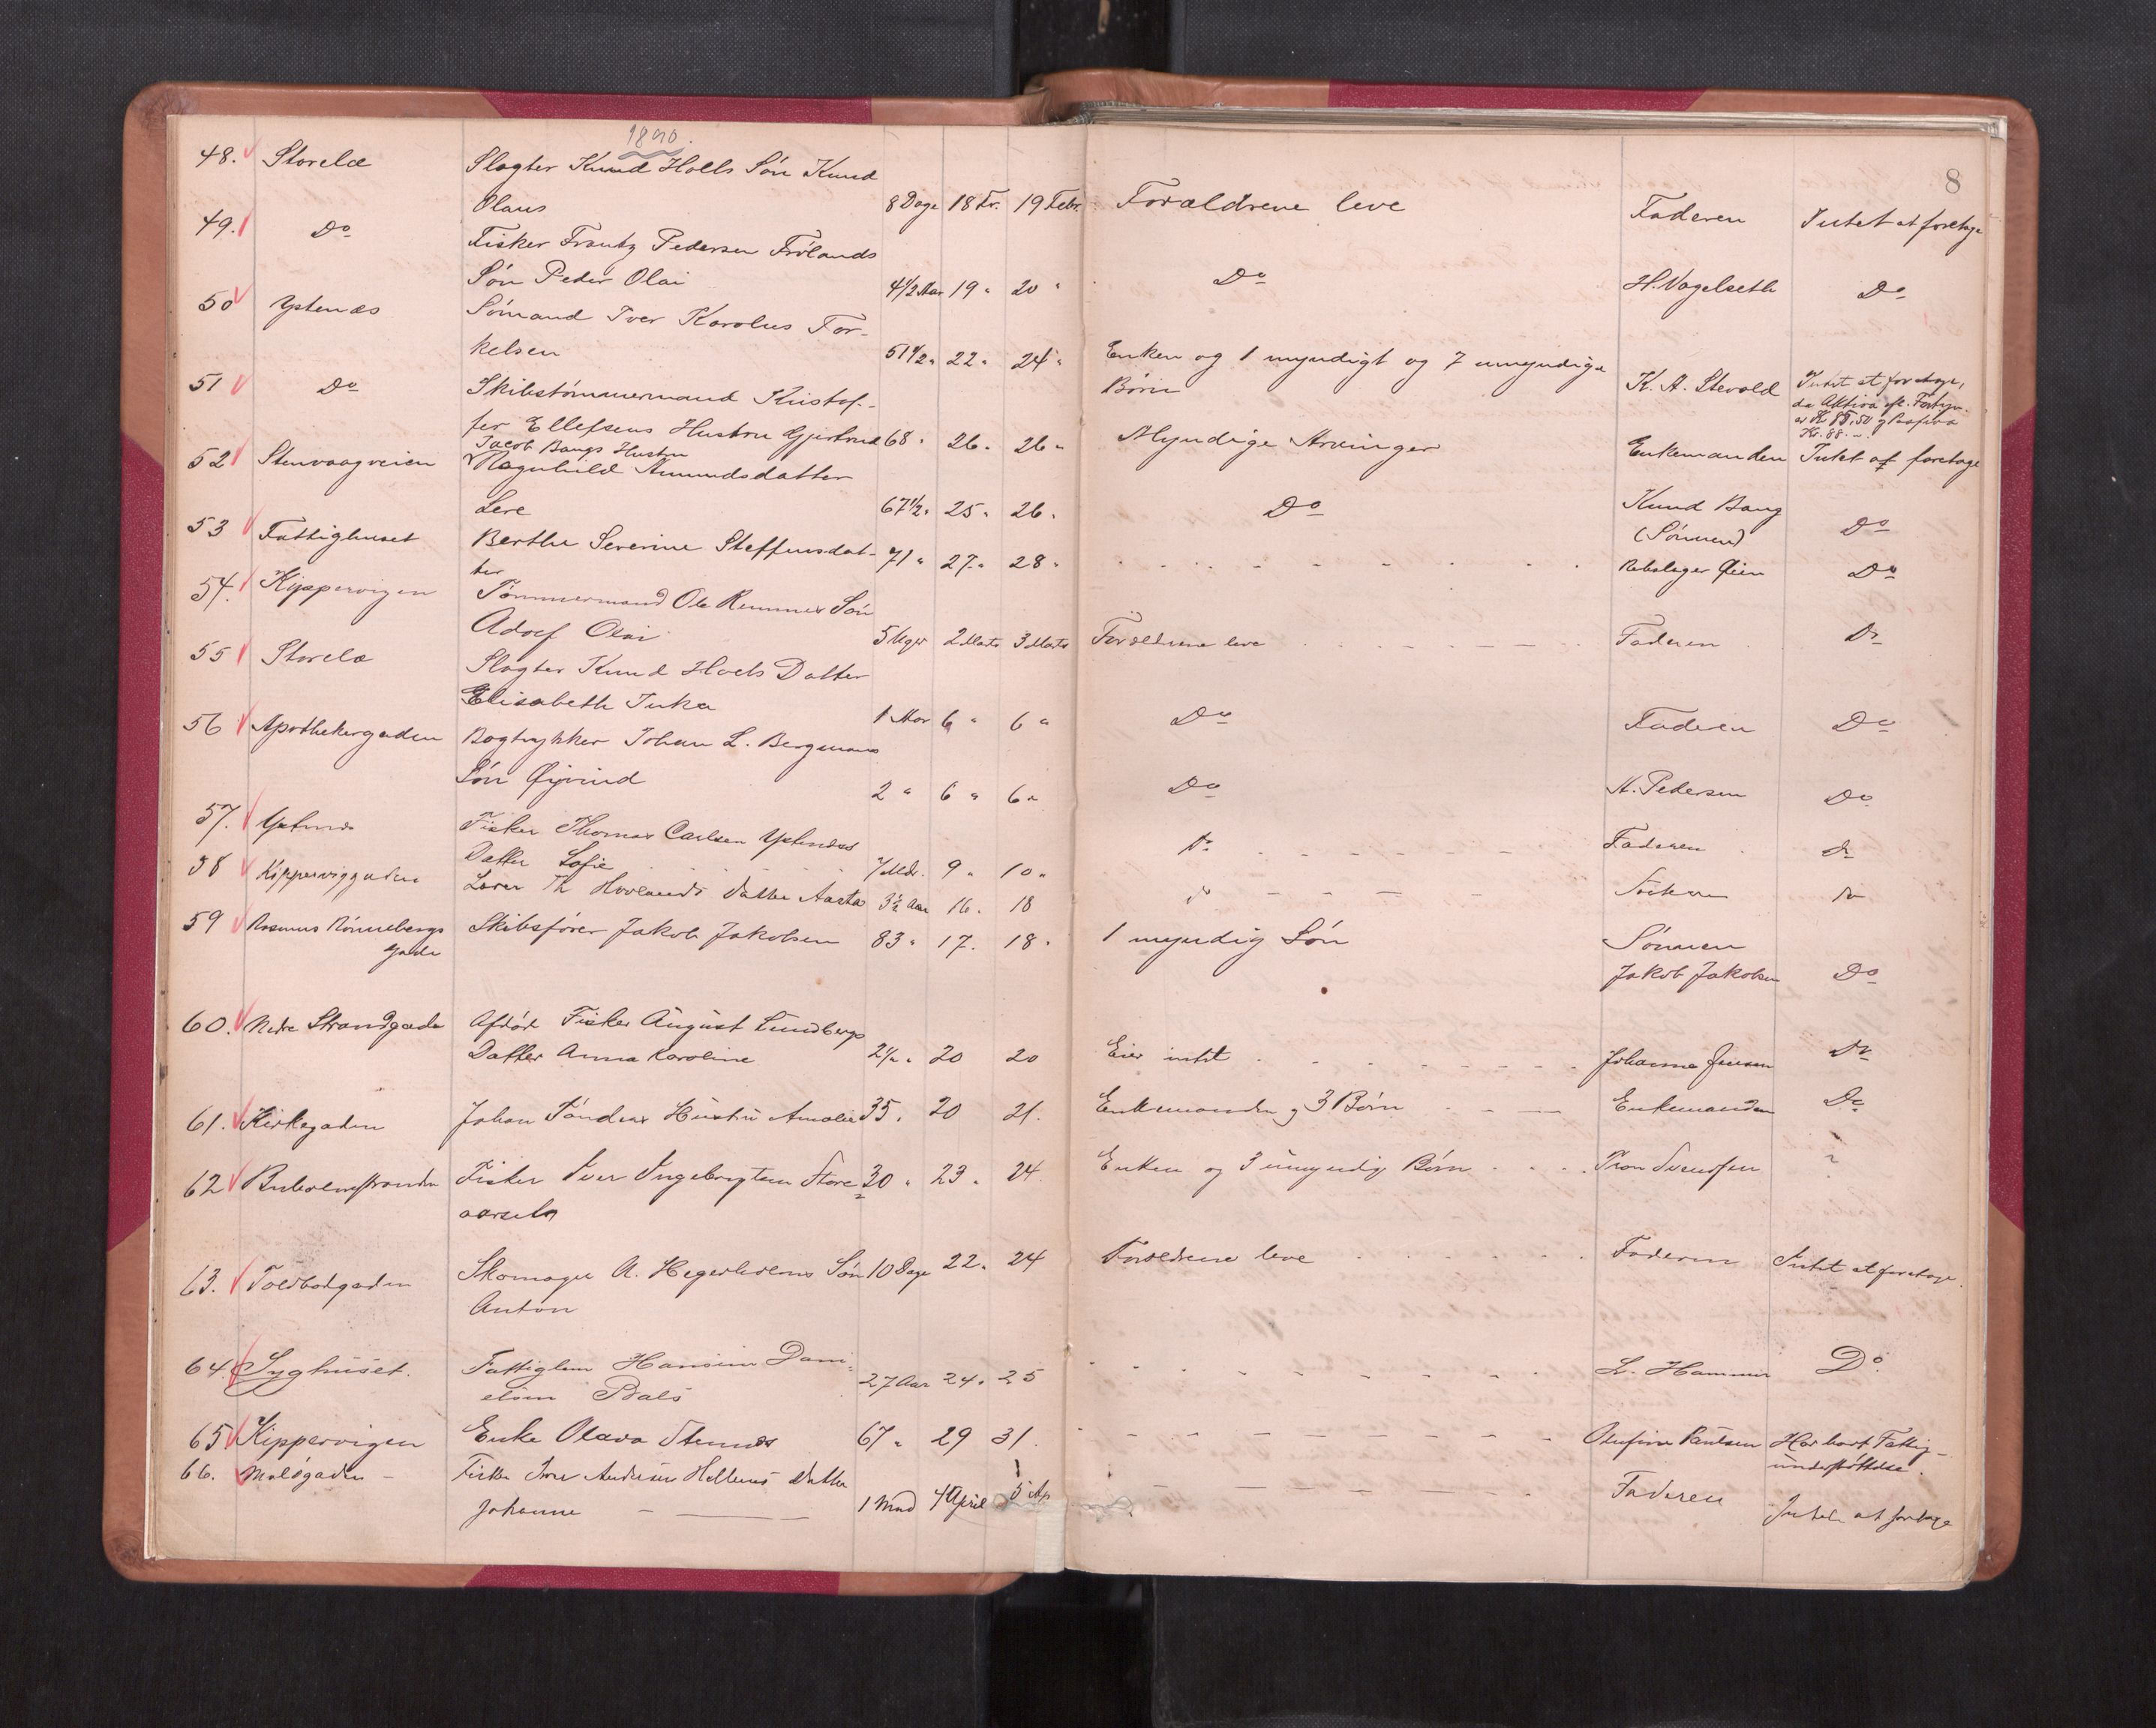 1890.
8
48. Storelæ Slagter Knud Holls Søn Knud
Olaus 8 Dage 18 Fr. 19 Febr. Forældrene leve Faderen Intet at foretage
49. Do Fisker Frantz Pedersen Frølands
Søn Peder Olai 4 1/2 Aar 19 " 20 " Do H. Vagelseth Do
50 Ystenæs Sømand Iver Karolus Tor-
kelsen 51 1/2 " 22 " 24 " Enken og 1 myndigt og 7 umyndige
Børn K. A. Stevold Intet at foretage,
da Aktiva efter Fortegn.
er Kr 85,50 og Passiva
Kr. 88. -
51 Do Skibstømmermand Kristof-
fer Ellefsens Hustru Gjertrud 68 " 26 " 26 " Myndige Arvinger Enkemanden Intet at foretage
52 Stenvaagveien Jacob Bangs Hustru
Ragnhild Amundsdatter
Lere 67 1/2 " 25 " 26 " Do Knud Bang
(Sønnen) Do
53 Fattighuset Berthe Severine Steffensdat-
ter 71 " 27 " 28 " Rebslager Øien Do
54. Kippervigen Tømmermand Ole Remmes Søn
Adolf Olai 5 Uger 2 Marts 3 Marts Forældrene leve Faderen Do
55 Storelæ Slagter Knud Hoels Datter
Elisabeth Inka 1 Aar 6 " 6 " Do Faderen Do
56 Apothekergaden Bogtrykker Johan L. Bergmans
Søn Øyvind 2 " 6 " 6 " Do A. Pedersen Do
57. Ystenæs Fisker Thomas Carlsen Ystenæs
Datter Sofie 7 Mdr. 9 " 10 " Do Faderen do
58 Kipperviggaden Lærer Th Hovlands datter Aasta 3 1/2 Aar 16 " 18 do do
59 Rasmus Rønnebergs
gade Skibsfører Jakob Jakobsen 83 " 17. 18 " 1 myndig Søn Sønnen
Jakob Jakobsen Do
60. Nedre Strandgade Afdøde Fisker August Lundbergs
Datter Anna Karoline 2 1/2 " 20 20 Eier intet Johanna Jensen Do
61. Kirkegaden Johan Tønders Hustru Amalie 35. 20 21. Enkemanden og 3 Børn Enkemanden Do
62 Buholmstranden Fisker Iver Ingebrigtsen Store
30 " 23 " 24. Enken og 3 umyndige Børn Tron Svendsen ?
63. Toldbodgaden Skomager A. Hegerholms Søn 10 Dage 22 " 24 Forældrene leve Faderen Intet at foretage.
Anton
64 Syghuset. Fattiglem Hansine Dani-
elsen Bals 27 Aar 24 " 25 L. Hammer Do.
65 Kippervigen Enke Olava Stennæs 67 " 29 31. Olufine Paulsen Har havt Fattig-
understøttelse.
66. Moløgaden - Fisker Iver Andersen Hellems datter
Johanne 1 Mnd 4 April 5 Ap Faderen Intet at foretage